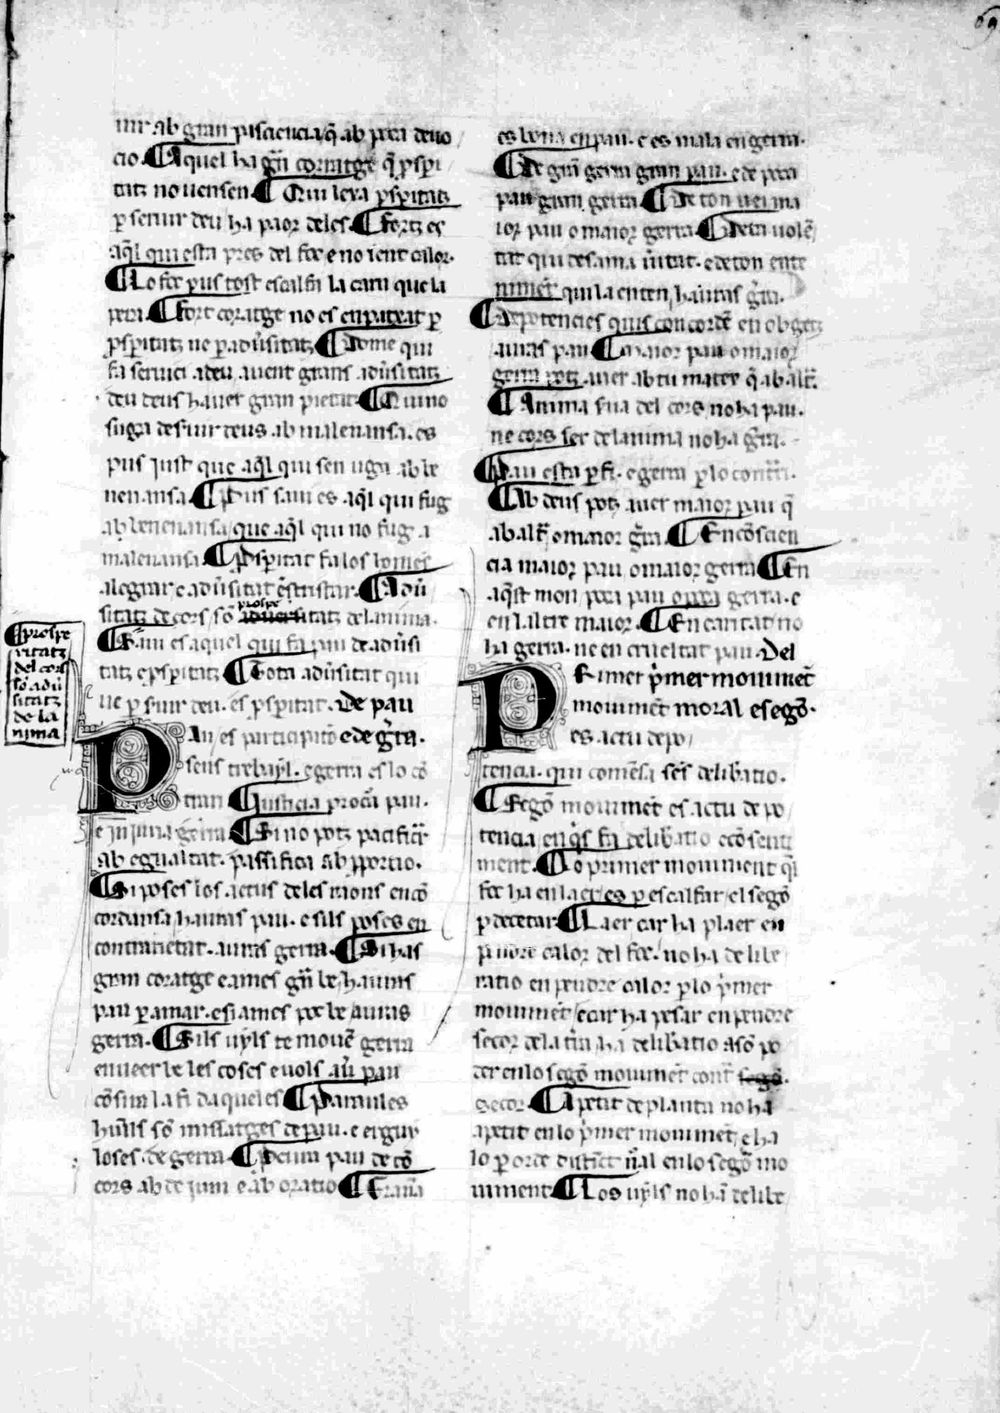 uir ab gran pisciencia q̃ ab poca deuo
cio. Aquel ha gñ coratge q̃ ꝑspi
tatz no uensen. Qui lexa ꝑspitatz
ꝑ seruir deu ha paor deles. fortz es
aq̃l qui esta pres del foc e no sent calor.
No foc pus tost escalfa la carn que la
pera. fort coratge no es enpatxat ꝑ
ꝓspitatz ne ꝑ adũsitatz. Home qui
fa seruici a deu auent grans adũsitatz
deu deus hauer gran pietat. Qui no
fuga de siuir deus ab malenansa. es
pus just que aq̃l qui sen uga ab be
nenansa. Pus saui es aq̃l qui fug
ab benenansa que aq̃l qui no fug a
malenansa. Pspitat fa los homes
alegrar e adũsitat ẽtristar. Adũ
sitatz de cors sõ prospe sitatz del anima.
Sani es aquel qui fa pau de adũsi
tatz e ꝓspitatz. Tota adũsitat qui
ue ꝑ siuir deu. es ꝓspitat. De pau
Au es participãt e de g̃ra.
sens trebayl. e gerra es lo cõ
trari. Justicia procã pau.
e injuria gerra. Si no potz pacificar
ab egualtat. passifica ab ꝓporcio.
Si poses los actus deles raons en cõ
cordansa hauras pau. e sils poses en
contrarietat. auras gerra. Si has
gran coratge e ames gñ be hauras
pau ꝑ amar. e si ames poc be auras
gerra. Sils uyls te mouẽ gerra
en ueer be les coses e uols aũ pau
cõsira la fi daqueles. Paraules
huĩls sõ missatges de pau. e erguy
loses. de gerra. Pcura pau de cõ
cors ab dejuni e ab oratio.
prospe
ritatz
del cors
sõ adũ
sitatz
de la
nima
es bona en pau. e es mala en gerra.
De grã gerra gran pau. e de poca
pau gran gerra. De ton uei ma
ior pau o maior gerra. Deta uolẽ
tat qui desama ũitat. e de ton ente
nimẽt qui la enten, hauras g̃ra.
De potencies quis concordẽ en obgetz
auras pau. Maior pau o maior
gerra potz auer ab tu mateix q̃ ab altr̃.
Anima fua del cors no ha pau.
ne cors ser del anima no ha g̃ra.
Pau esta ꝑ fi. e gerra ꝑ lo contr̃i.
Ab deus potz auer maior pau q̃
ab altr̃, o maior g̃ra. En cõscien
cia maior pau o maior gerra. En
aq̃st mon poca pau o poca gerra. e
en laltre maior. En caritat no
ha gerra. ne en crueltat pau. Del
Rimer p̃mer mouimẽt
mouimẽt moral e segõ.
es actu de po
tencia. qui comẽsa sẽs delibatio.
Segõ mouimẽt es actu de po
tencia en q̃s fa delibatio e cõsenti
ment. Lo primer mouiment q̃l
foc ha en laer es ꝑ escalfar, el segõ
ꝑ dececar. Laer car ha plaer en
pẽdre calor del foc. no ha delibe
ratio en pendre calor ꝑ lo p̃mer
mouimẽt, e car ha pesar en pendre
secor dela tĩra ha delibatio a sõ po
der en lo segõ mouimẽt contr̃
secor. Apetit de planta no ha
apetit en lo p̃mer mouimẽt, e ha
lo ꝑ orde distĩct ñal en lo segõ mo
uiment. Los uyls no hã delibe